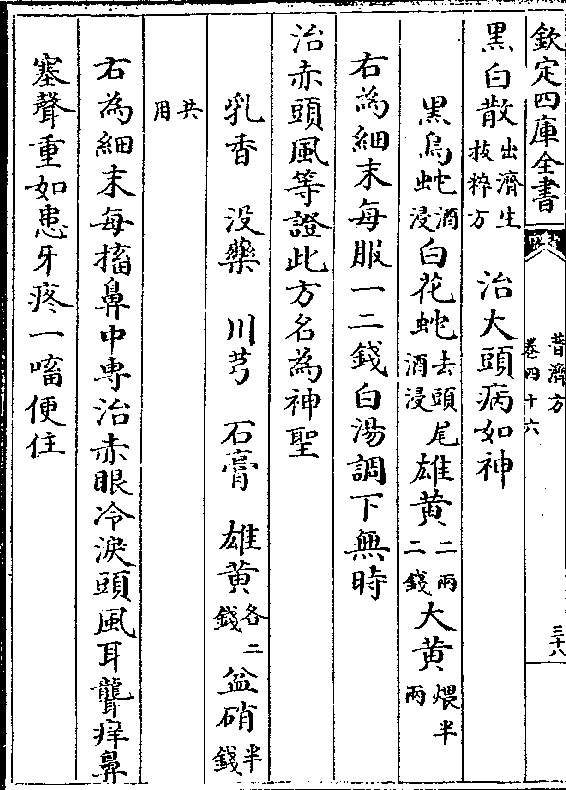 欽定四庫全書
普濟方
卷四十六
三十八
黑白散出濟生拔粹方 治大頭病如神
黑烏蛇酒浸白花蛇去頭尾酒浸雄黄二兩二錢大黄煨半兩
右為細末每服一二錢白湯調下無時
治赤頭風等證此方名為神聖
乳香 没藥 川芎 石膏 雄黄各二錢 盆硝半錢
共用
右為細末每搐鼻中専治赤眼冷淚頭風耳聾痒鼻
塞聲重如患牙疼一㗜便住